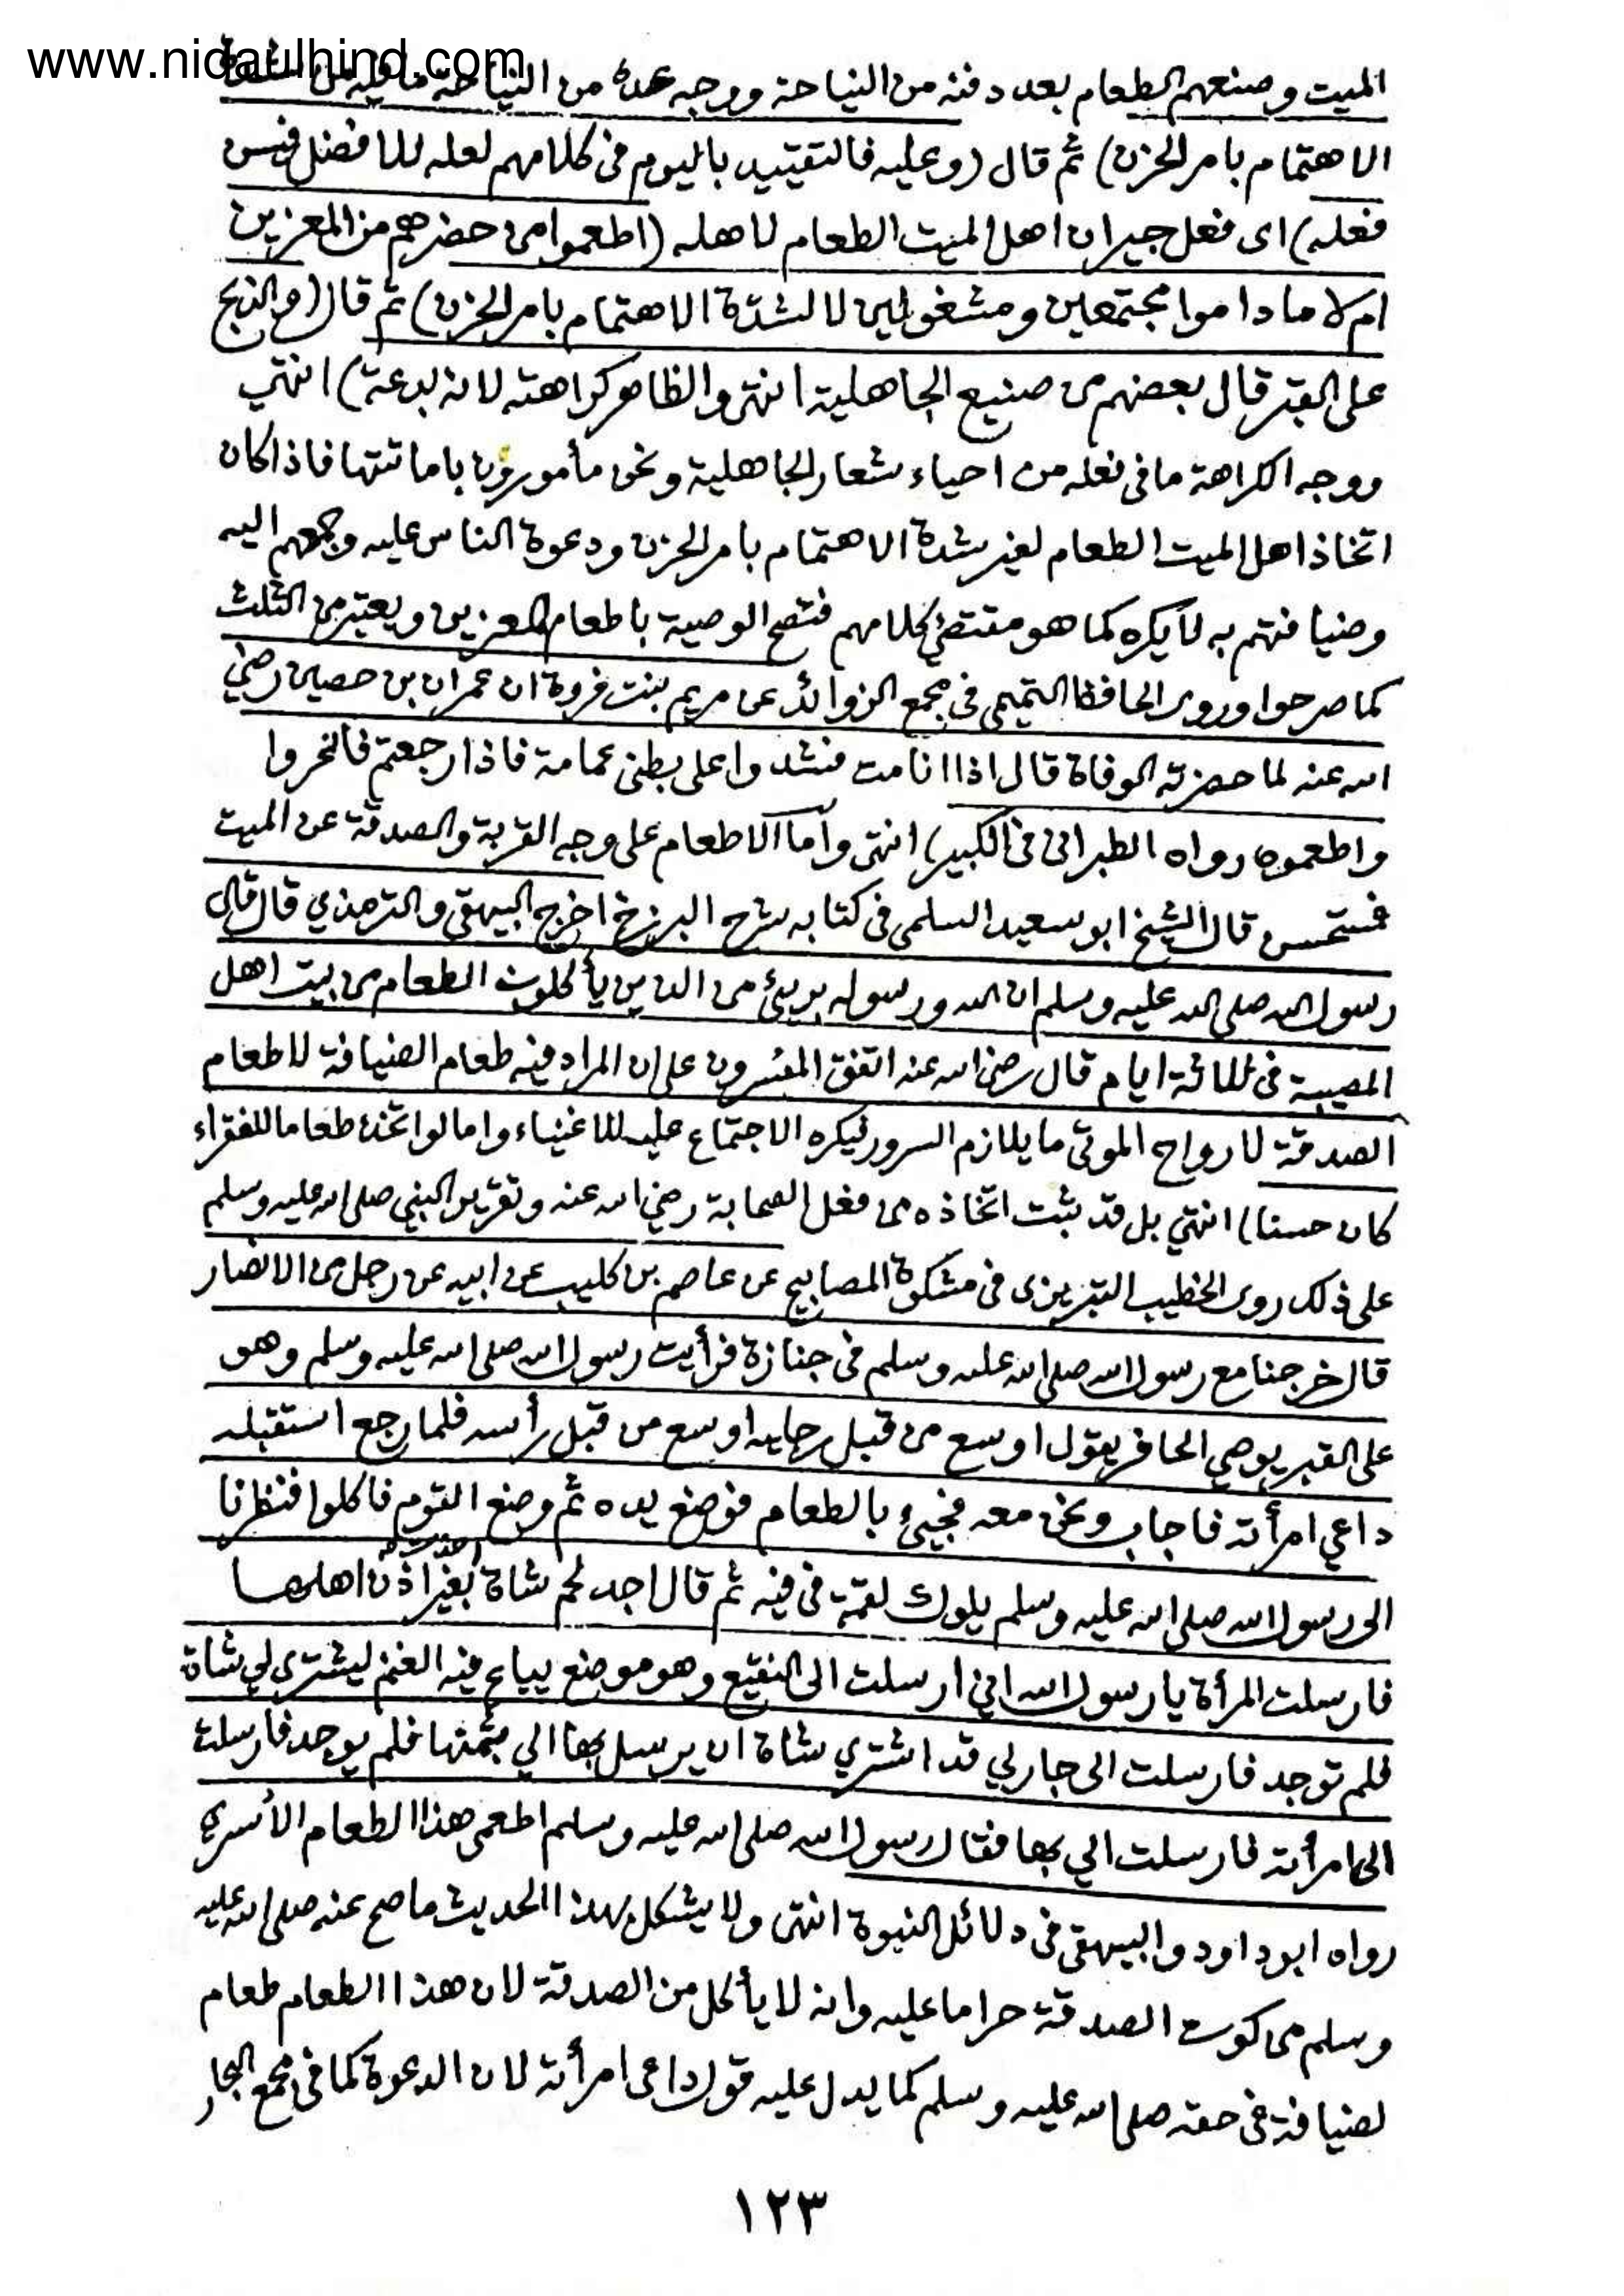 www.nidaulhind.com
الميت وصنعهم الطعام بعد دفنه من النياحة ووجه عده من النياحة ما فيه من شدة
الاهتمام بامر الحزن) ثم قال (وعليه فالتقييد باليوم في كلامهم لعله للافضل فيسن
فعله) اى فعل جيران اهل الميت الطعام لاهله (اطعموا من حضرهم من المعزين
ام لا ما داموا مجتمعين ومشغولين لا لشدة الاهتمام بامر الحزن) ثم قال (والذبح
على القبر قال بعضهم من صنيع الجاهلية انتهى والظاهر كراهته لانه بدعة) انتهي
ووجه الكراهة ما في فعله من احياء شعار الجاهلية ونحن مأمورون باماتتها فاذا كان
اتخاذ اهل الميت الطعام لغير شدة الاهتمام بامر الحزن ودعوة الناس عليه وجمعهم اليه
وضيافتهم به لا يكره كما هو مقتضي كلامهم فتصح الوصية باطعام المعزين ويعتبر من الثلث
كما صرحوا وروى الحافظ الهيتمى في مجمع الزوائد عن مريم بنت فروة ان عمران بن حصين رضي
الله عنه لما حضرته الوفاة قال اذا انا مت فشدوا على بطنى عمامة فاذا رجعتم فانحروا
واطعموه رواه الطبرانى في الكبير) انتهى وأما الاطعام على وجه القربة والصدقة عن الميت
فمستحسن قال الشيخ ابو سعيد السلمى فى كتابه شرح البرزخ اخرج البيهقى والترمذي قال قال
رسول الله صلى الله عليه وسلم ان الله ورسوله بريئ من الذين يأكلون الطعام من بيت اهل
المصيبة فى ثلاثة ايام قال رضي الله عنه اتفق المفسرون على ان المراد فيه طعام الضيافة لا طعام
الصدقة لارواح الموتى ما يلازم السرور فيكره الاجتماع عليه للاغنياء واما لو اتخذ طعاما للفقراء
كان حسنا) انتهي بل قد ثبت اتخاذه من فعل الصحابة رضي الله عنه وتقرير النبي صلى الله عليه وسلم
على ذلك روى الخطيب التبريزى فى مشكوة المصابيح عن عاصم بن كليب عن ابيه عن رجل من الانصار
قال خرجنا مع رسول الله صلى الله عليه وسلم فى جنازة فرأيت رسول الله صلى الله عليه وسلم وهو
على القبر يوصي الحافر يقول اوسع من قبل رجليه اوسع من قبل رأسه فلما رجع استقبله
داعي امرأته فاجاب ونحن معه فجيئ بالطعام فوضع يده ثم وضع القوم فاكلوا فنظرنا
الى رسول الله صلى الله عليه وسلم يلوك لقمة فى فيه ثم قال اجد لحم شاة أخذت بغير اذن اهلها
فارسلت المرأة يا رسول الله اني ارسلت الى النقيع وهو موضع يباع فيه الغنم ليشترى لي شاة
فلم توجد فارسلت الى جار لي قد اشتري شاة ان يرسل بها الي بثمنها فلم يوجد فارسلت
الى امرأته فارسلت الي بها فقال رسول الله صلى الله عليه وسلم اطعمى هذا الطعام الأسرى
رواه ابو داود والبيهقى فى دلائل النبوة انتهى ولا يشكل بهذا الحديث ما صح عنه صلى الله عليه
وسلم من كون الصدقة حراما عليه وانه لا يأكل من الصدقة لان هذا الطعام طعام
لضيافة فى حقه صلى الله عليه وسلم كما يدل عليه قوله داعى امرأته لان الدعوة كما فى مجمع البحار
١٢٣